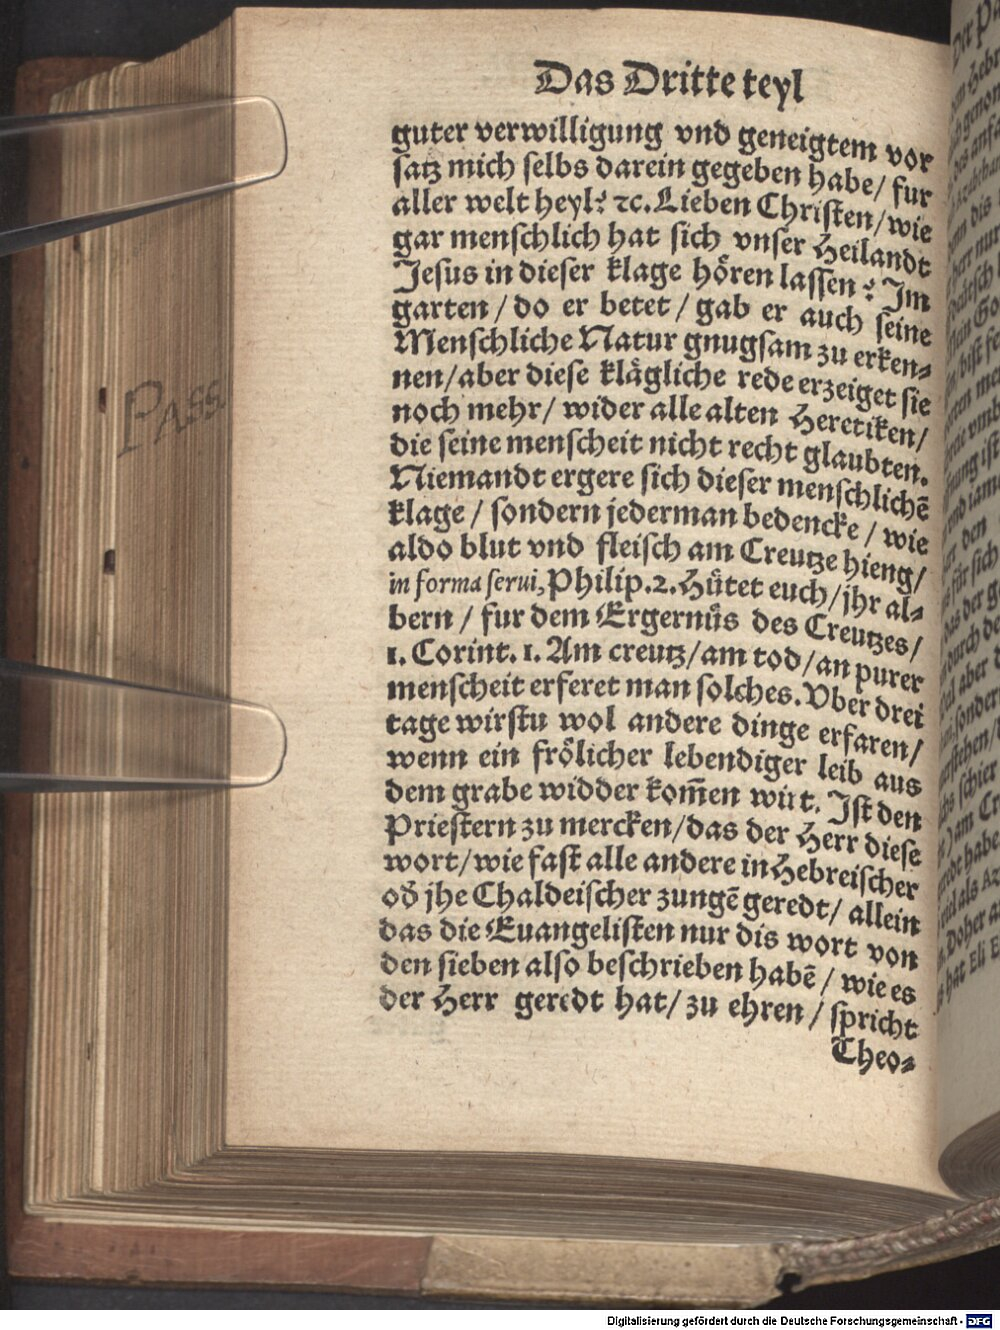 Das Dritte teyl
guter verwilligung vnd geneigtem vor
satz mich selbs darein gegeben habe/ fur
aller welt heyl? ⁊c. Lieben Christen/ wie
gar menschlich hat sich vnser Heilandt
Jesus in dieser klage hören lassen? Im
garten/ do er betet/ gab er auch seine
Menschliche Natur gnugsam zu erken⸗
nen/ aber diese klägliche rede erzeiget sie
noch mehr/ wider alle alten Heretiken/
die seine menscheit nicht recht glaubten.
Niemandt ergere sich dieser menschlichē
klage/ sondern jederman bedencke/ wie
aldo blut vnd fleisch am Creutze hieng/
in forma serui, Philip. 2. Hütet euch/ jhr al⸗
bern/ fur dem Ergernüs des Creutzes/
1. Corint. 1. Am creutz/ am tod/ an purer
menscheit erferet man solches. Vber drei
tage wirstu wol andere dinge erfaren/
wenn ein frölicher lebendiger leib aus
dem grabe widder kom̄en wirt. Ist den
Priestern zu mercken/ das der Herr diese
wort/ wie fast alle andere in Hebreischer
od̄ jhe Chaldeischer zungē geredt/ allein
das die Euangelisten nur dis wort von
den sieben also beschrieben habē/ wie es
der Herr geredt hat/ zu ehren/ spricht
Theo⸗
PASS
Digitalisierung gefördert durch die Deutsche Forschungsgemeinschaft - DFG